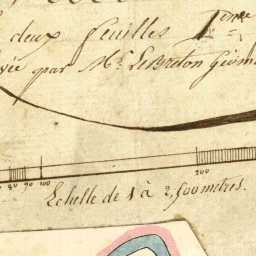 deux feuilles 1ère
vée par Mr. LeBreton Géom
80 90 100 200
Echelle de 1 à 2,500 metres.